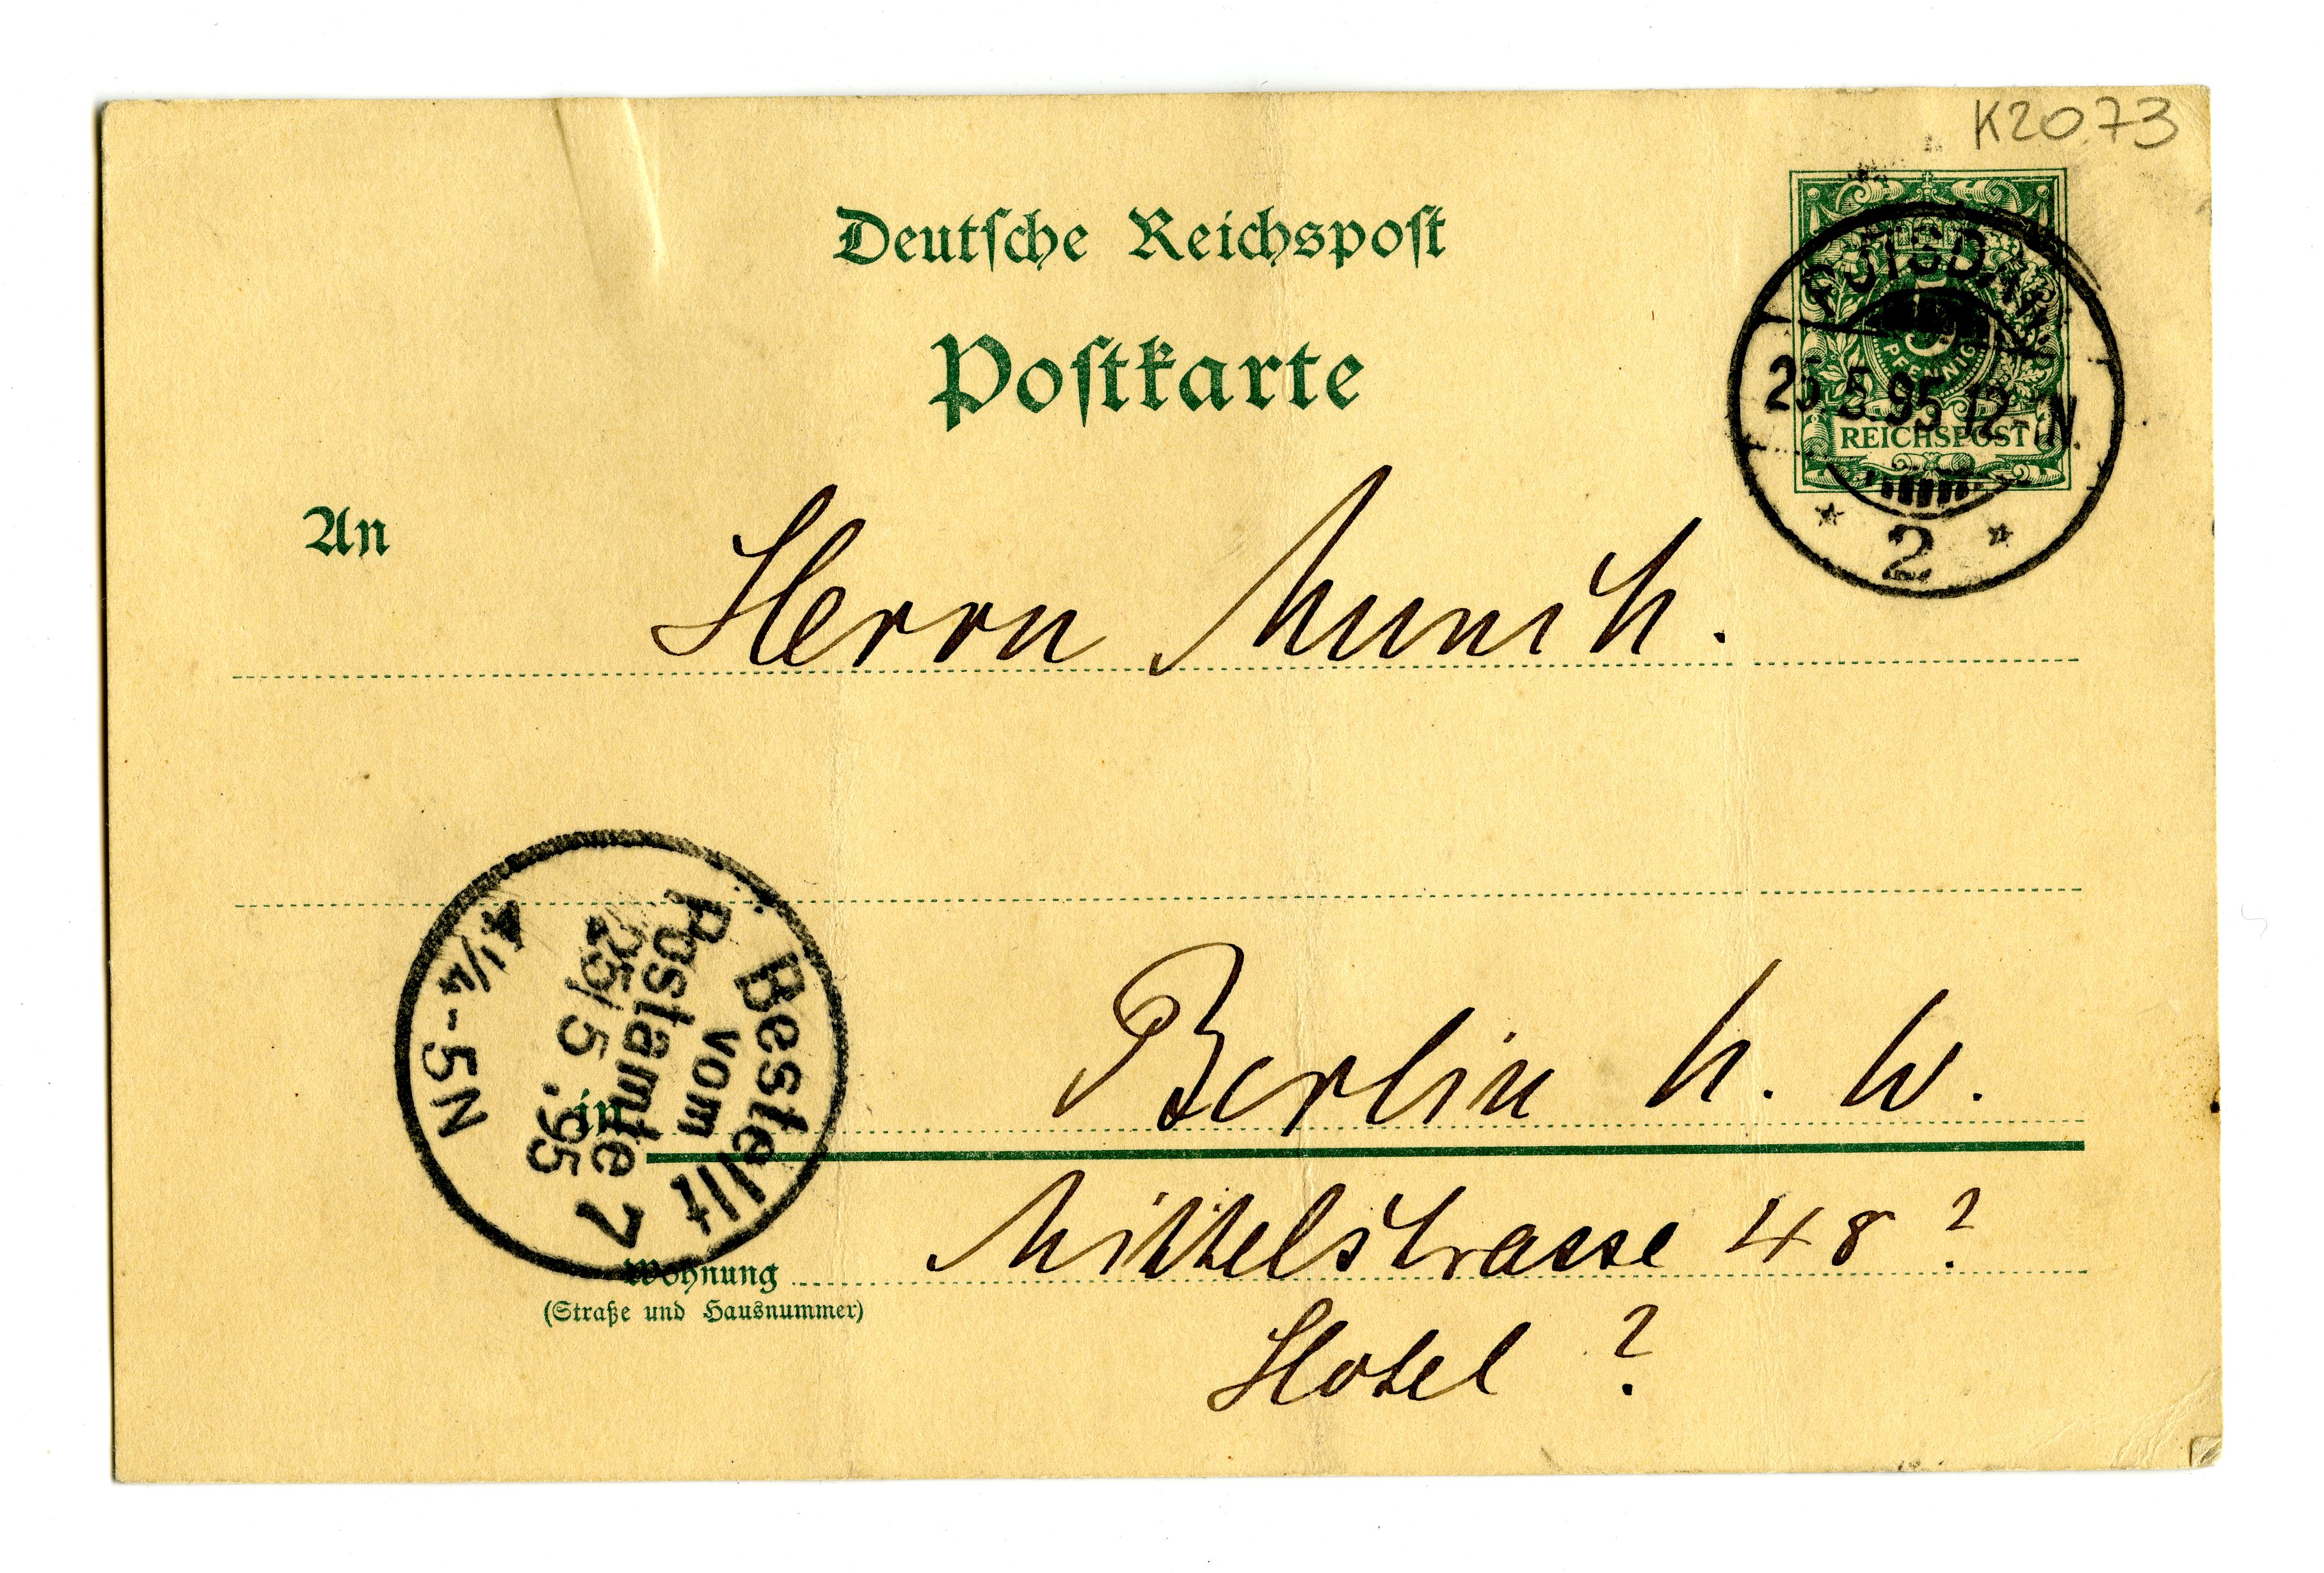 K2073
Deutsche Reichspost
Postkarte
POTSDAM
5
PFENNIG
25.5.95.12-1N.
REICHSPOST
* 2 *
An
Herrn Munch.
Bestellt
vom
Postamte 7
25/5.95
4¼-5N
in
Berlin N. W.
Wohnung
Mittelstrasse 48?
(Straße und Hausnummer)
Hotel ?